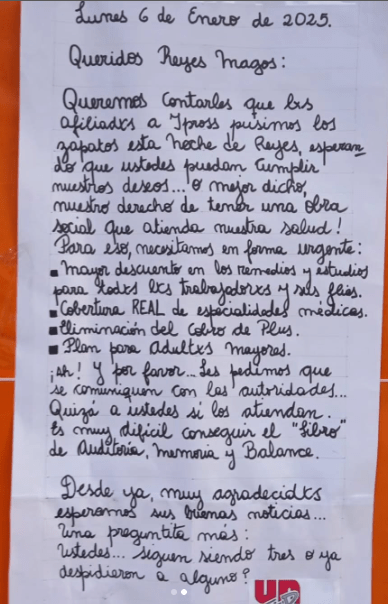 Lunes 6 de Enero de 2025.
Queridos Reyes Magos:
Queremos Contarles que lxs
afiliadxs a Ipross pusimos los
zapatos esta Noche de Reyes, esperan
do que ustedes puedan Cumplir
nuestros deseos... o mejor dicho,
nuestro derecho de tener una obra
social que atienda nuestra salud!
Para eso, necesitamos en forma urgente:
▪ Mayor descuento en los remedios y estudios
para todxs lxs trabajadorxs y sus flias.
▪ Cobertura REAL de especialidades médicas.
▪ Eliminación del Cobro de Plus.
▪ Plan para Adultxs Mayores.
¡Ah! Y por favor... Les pedimos que
se comuniquen con las autoridades...
Quizá a ustedes sí los atiendan.
Es muy difícil conseguir el "Libro"
de Auditoría, Memoria y Balance.
Desde ya, muy agradecidxs
esperamos sus buenas noticias...
Una preguntita más:
Ustedes... siguen siendo tres o ya
despidieron a alguno?